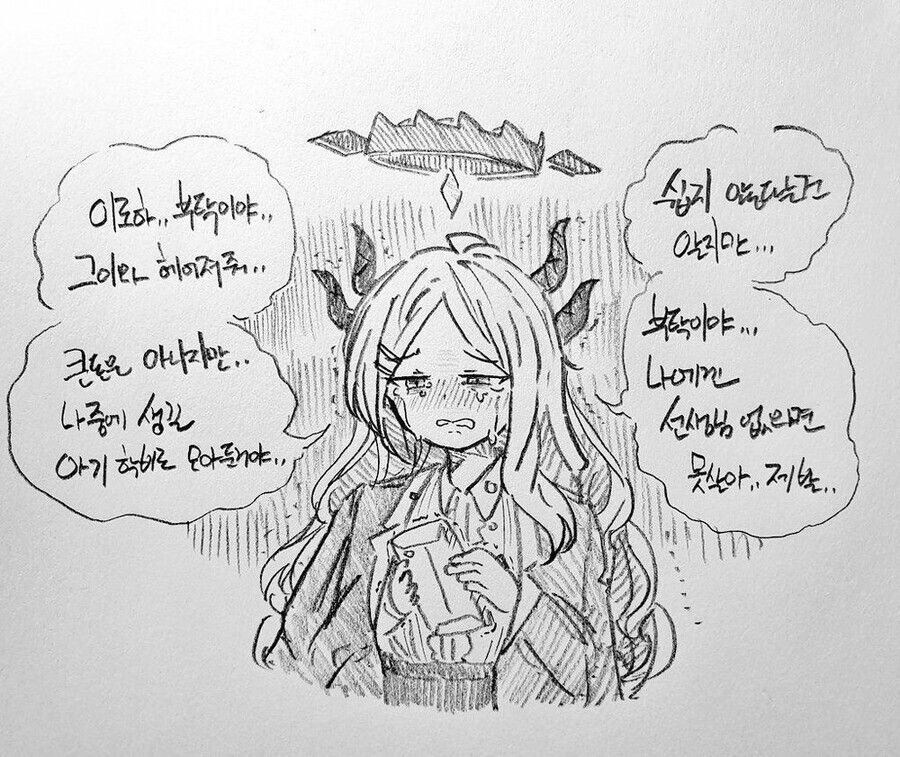 이로하.. 부탁이야..
그이와 헤어져줘..
큰돈은 아니지만..
나중에 생길
아기 학비로 모아둔거야..
쉽지 않는다는건
알지만...
부탁이야...
나에겐
선생님 없으면
못살아.. 제발..